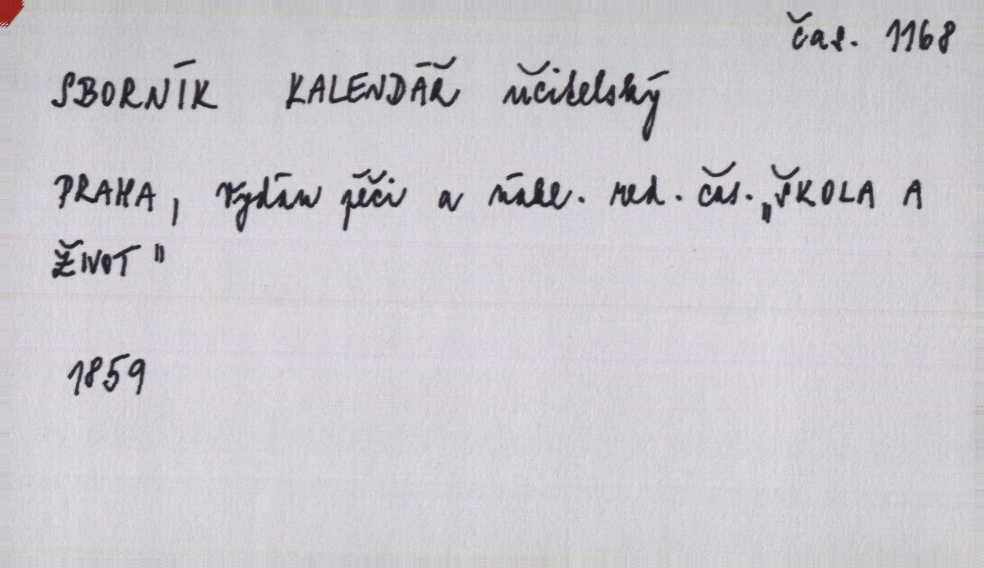 čas. 1168
SBORNÍK KALENDÁŘ učitelský
PRAHA, vydán péčí a nákl. red. čas. „ŠKOLA A
ŽIVOT"
1859